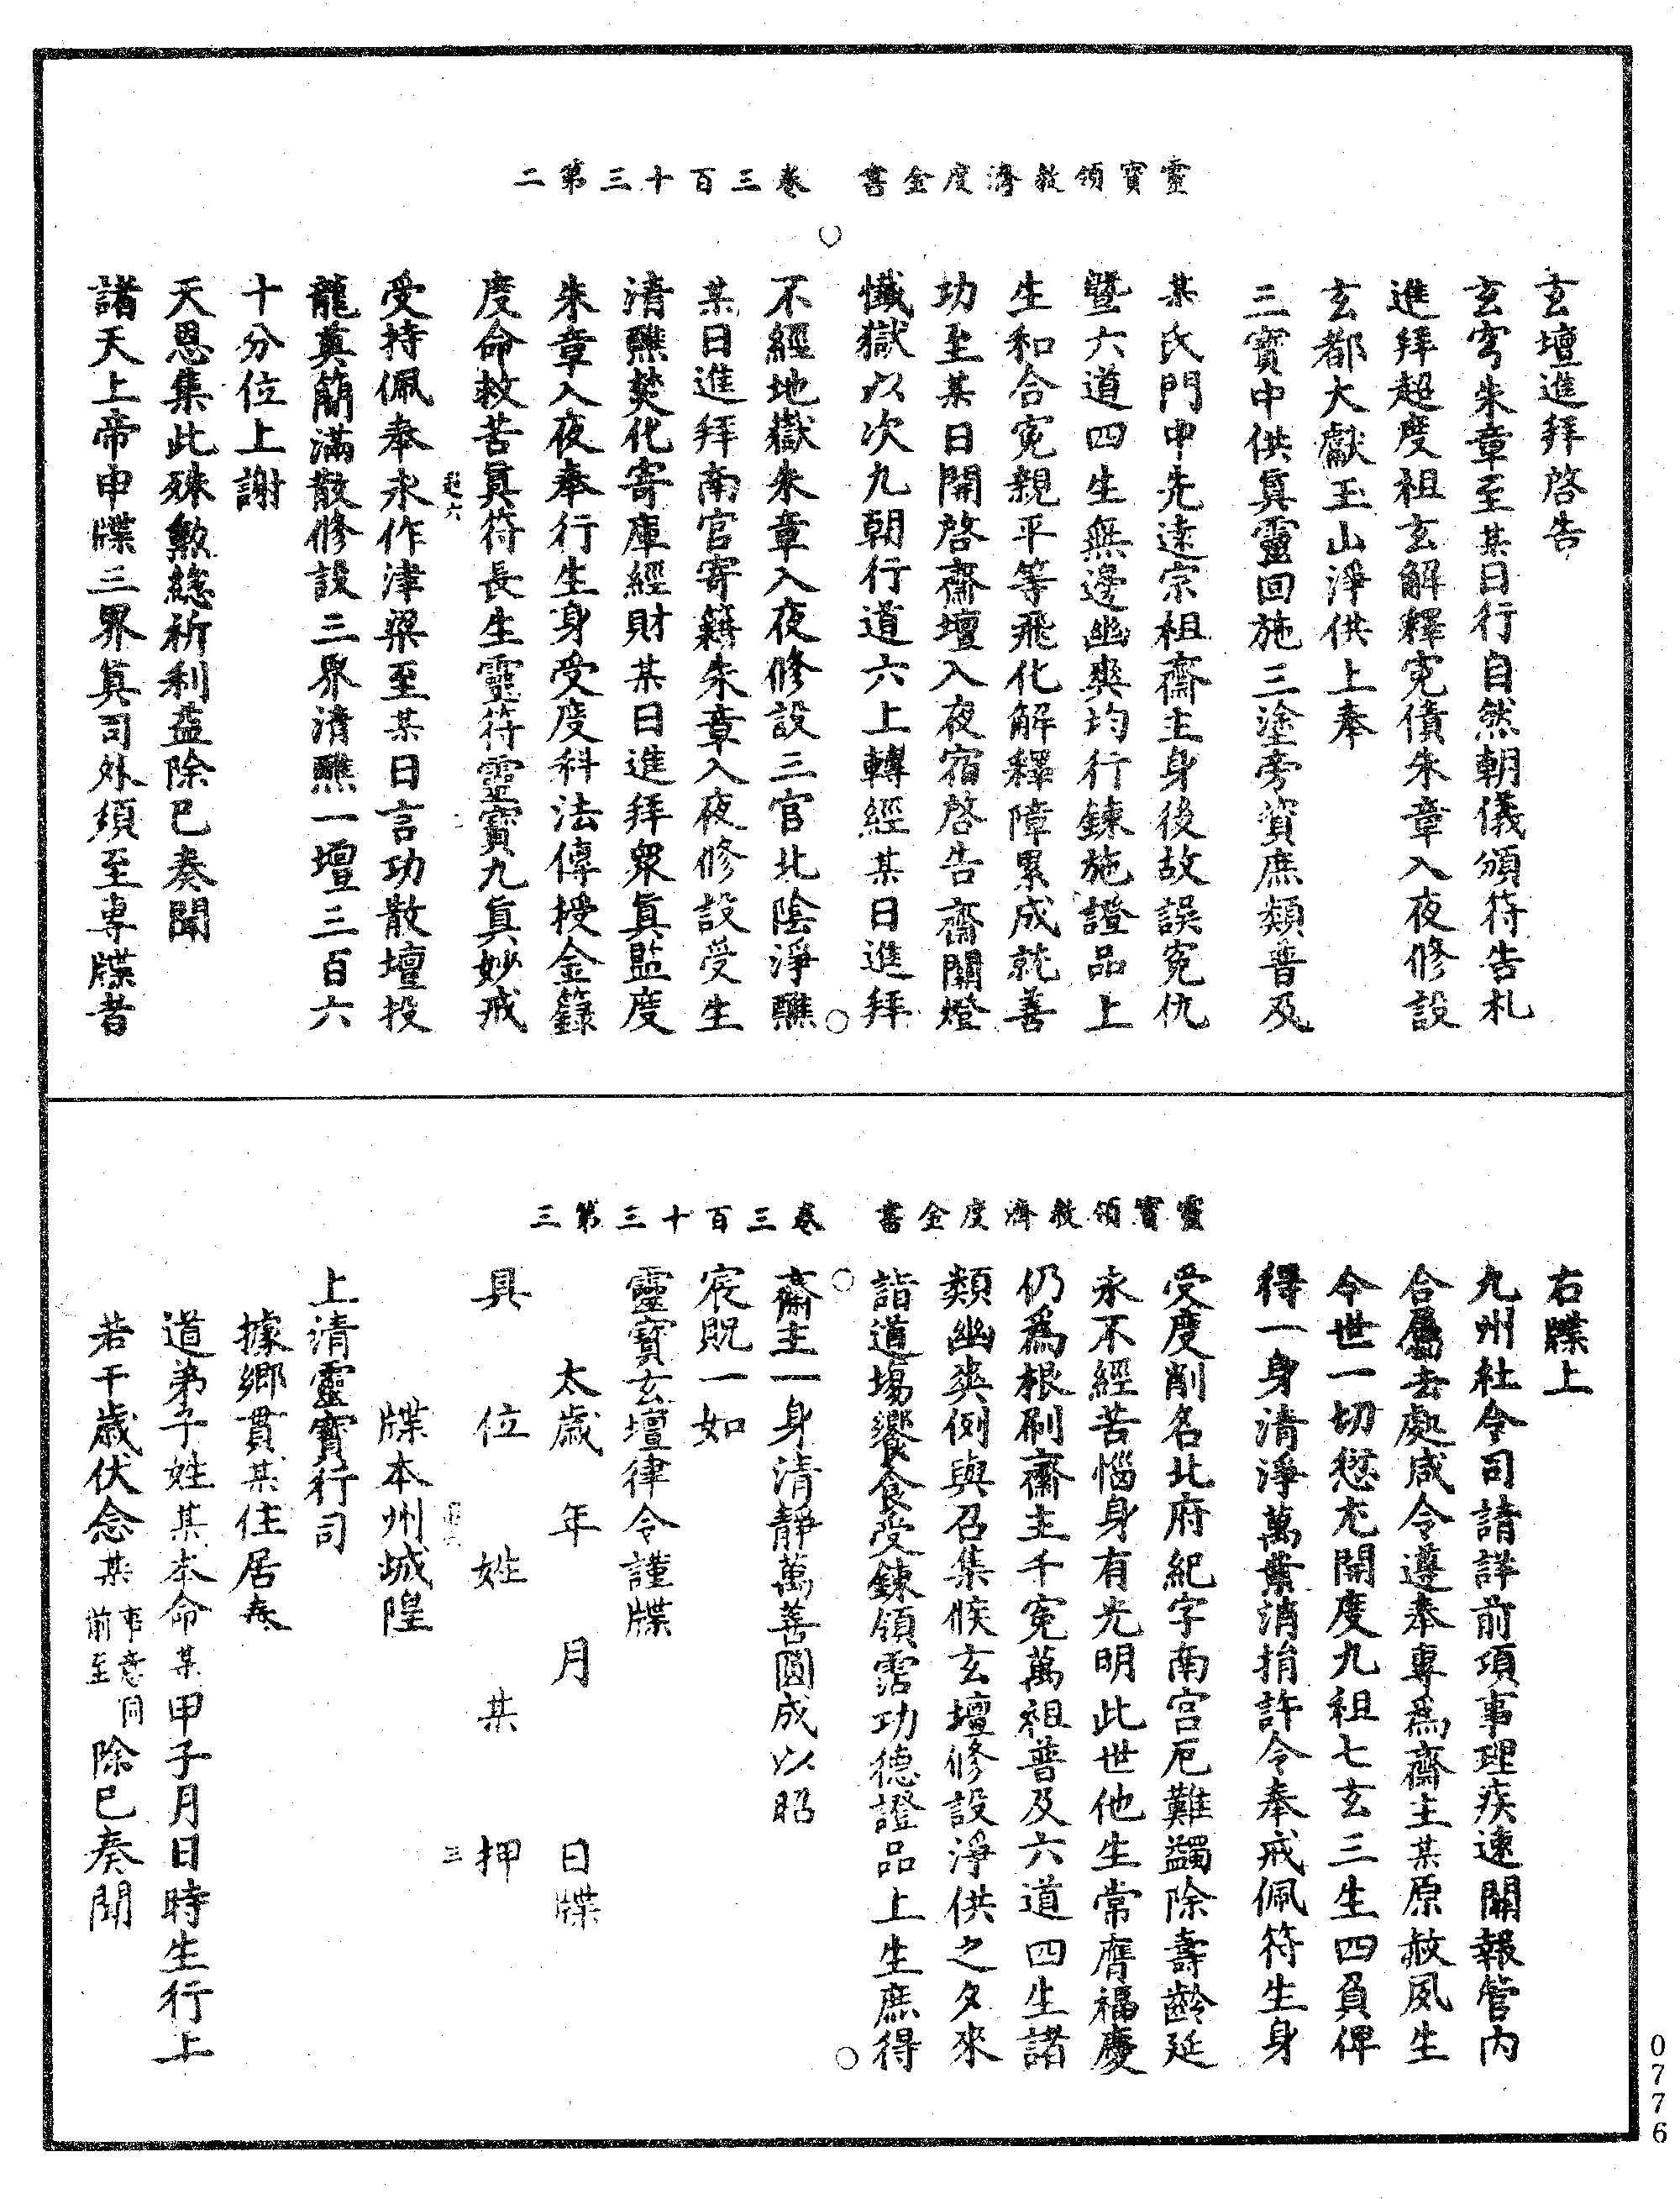 靈寶領教濟度金書　卷三百十三第二
玄壇進拜啓告
玄穹朱章至某日行自然朝儀頒符告札
進拜超度祖玄解釋冤債朱章入夜修設
玄都大獻玉山淨供上奉
三寶中供真靈回施三塗旁資庶類普及
某氏門中先遠宗祖齋主身後故誤冤仇
曁六道四生無邊幽爽均行鍊施證品上
生和合冤親平等飛化解釋障累成就善
功至某日開啓齋壇入夜宿啓告齋關燈
懺獄以次九朝行道六上轉經某日進拜
不經地獄朱章入夜修設三官北陰淨醮
某日進拜南宮寄籍朱章入夜修設受生
清醮焚化寄庫經財某日進拜衆真監度
朱章入夜奉行生身受度科法傳授金籙
度命救苦真符長生靈符靈寶九真妙戒
受持佩奉永作津梁至某日言功散壇投
龍奠簡滿散修設三界清醮一壇三百六
十分位上謝
天恩集此殊勲總祈利益除已奏聞
諸天上帝申牒三界真司外須至專牒者
靈寶領教濟度金書　卷三百十三第三
右牒上
九州社令司請詳前項事理疾速關報管内
合屬去處咸令遵奉專爲齋主某原赦夙生
今世一切愆尤開度九祖七玄三生四負俾
得一身清淨萬業消捐許令奉戒佩符生身
受度削名北府紀字南宮厄難蠲除壽齡延
永不經苦惱身有光明此世他生常膺福慶
仍爲根刷齋主千冤萬祖普及六道四生諸
類幽爽例與召集候玄壇修設淨供之夕來
詣道場饗食受鍊領霑功德證品上生庶得
齋主一身清靜萬善圓成以昭
宸貺一如
靈寶玄壇律令謹牒
太歲　年　月　日牒
具　位　姓　某　押
三
牒本州城隍
上清靈寶行司
據鄉貫某住居奉
道弟子姓某本命某甲子月日時生行上
若干歲伏念某事意同前至除已奏聞
0776